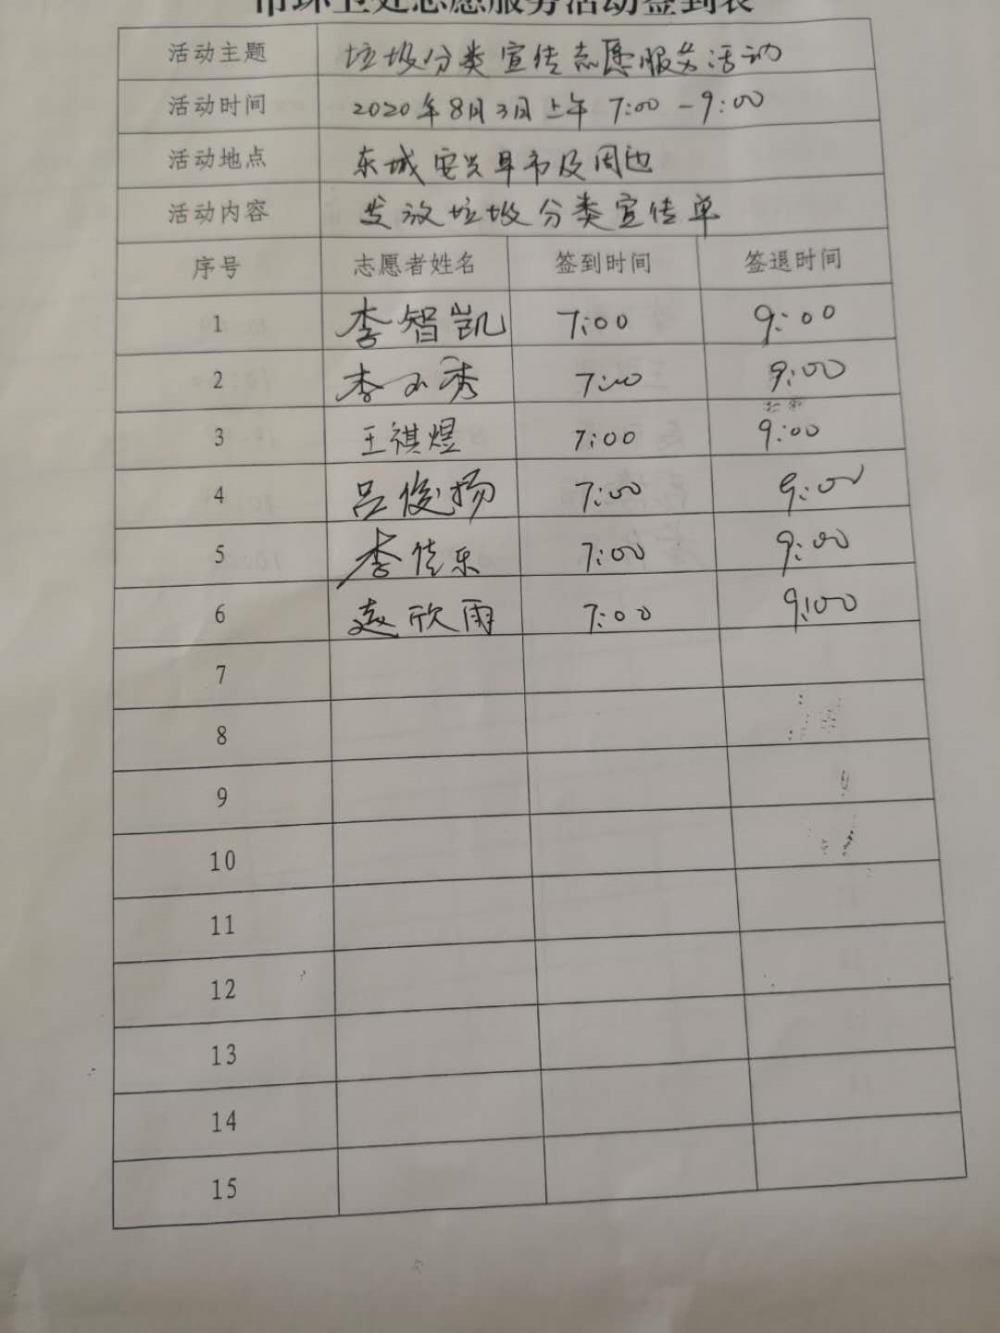 市环卫处志愿服务活动签到表
活动主题 垃圾分类宣传志愿服务活动
活动时间 2020年8月3日上午 7:00-9:00
活动地点 东城安兴早市及周边
活动内容 发放垃圾分类宣传单
序号 志愿者姓名 签到时间 签退时间
1 李智凯 7:00 9:00
2 李小秀 7:00 9:00
3 王祺煜 7:00 9:00
4 吕俊扬 7:00 9:00
5 李佳乐 7:00 9:00
6 赵欣雨 7:00 9:00
7
8
9
10
11
12
13
14
15